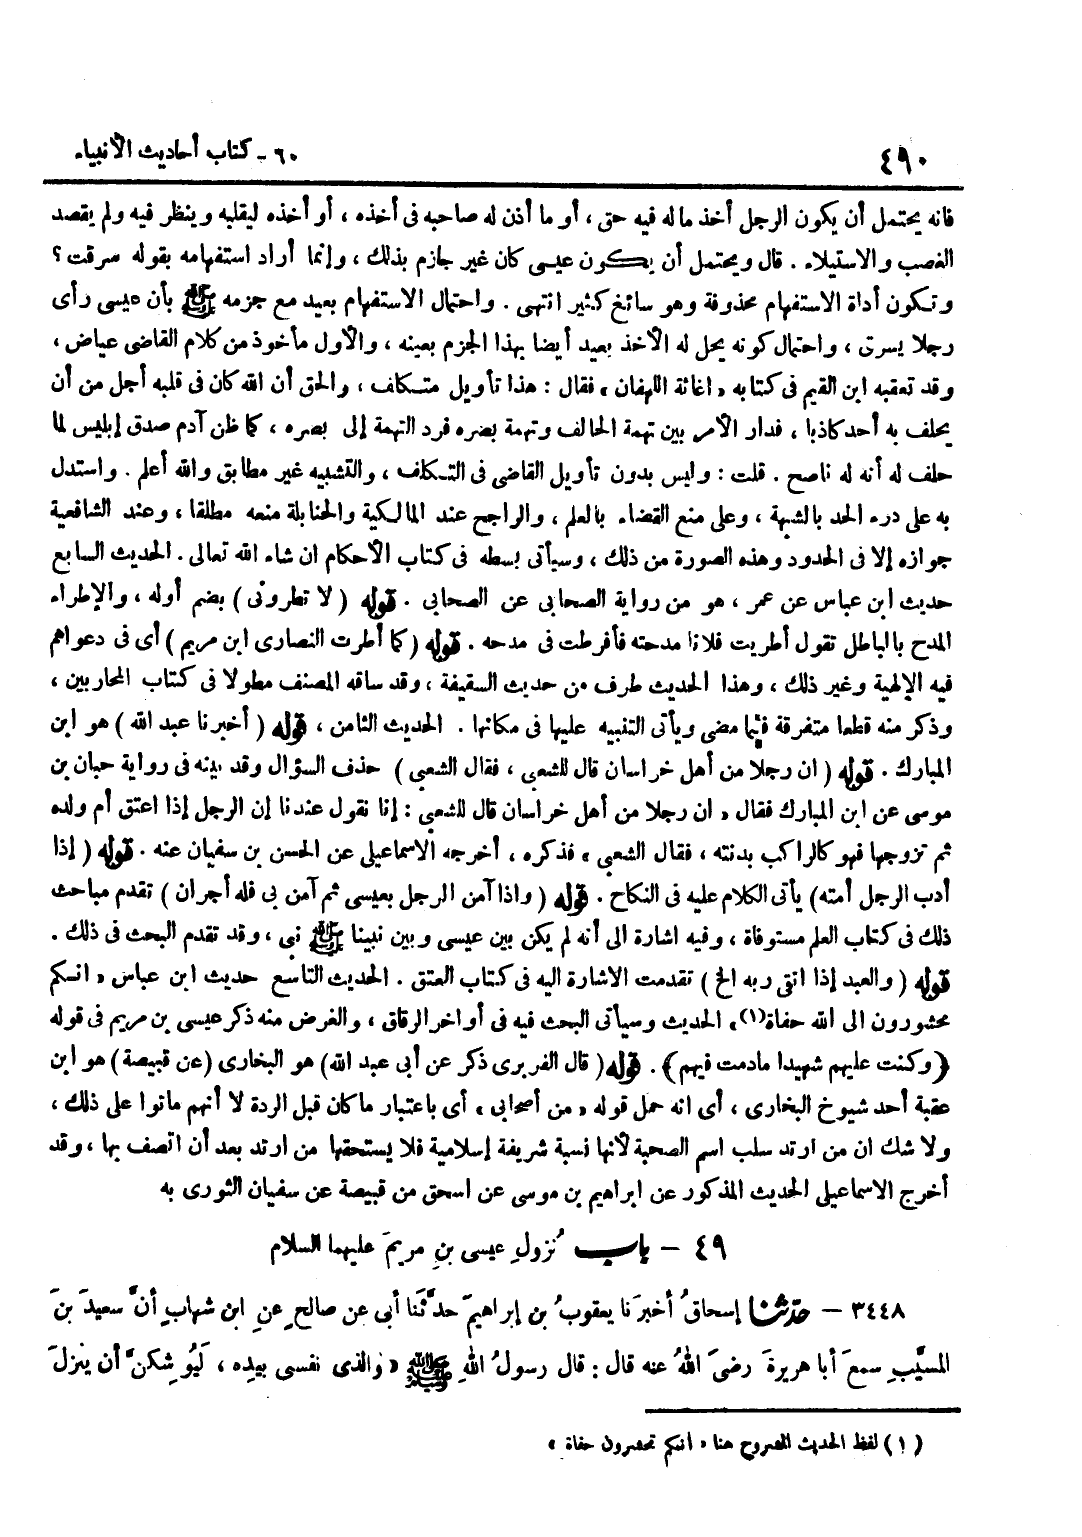 ٤٩٠
٦٠ - كتاب أحاديث الأنبياء
فانه يحتمل أن يكون الرجل أخذ ماله فيه حق ، أو ما أذن له صاحبه فى أخذه ، أو أخذه ليقلبه وينظر فيه ولم يقصد
الغصب والاستيلاء . قال ويحتمل أن يكون عيسى كان غير جازم بذلك ، وإنما أراد استفهامه بقوله سرقت ؟
وتكون أداة الاستفهام محذوفة وهو سائغ كثير انتهى . واحتمال الاستفهام بعيد مع جزمه ﷺ بأن عيسى رأى
رجلا يسرق ، واحتمال كونه يحل له الأخذ بعيد أيضا بهذا الجزم بعينه ، والأول مأخوذ من كلام القاضى عياض ،
وقد تعقبه ابن القيم فى كتابه « اغاثة اللهفان » فقال : هذا تأويل متكلف ، والحق أن الله كان فى قلبه أجل من أن
يحلف به أحد كاذبا ، فدار الأمر بين تهمة الحالف وتهمة بصره فرد التهمة إلى بصره ، كما ظن آدم صدق إبليس لما
حلف له أنه له ناصح . قلت : وليس بدون تأويل القاضى فى التكلف ، والتشبيه غير مطابق والله أعلم . واستدل
به على درء الحد بالشبهة ، وعلى منع القضاء بالعلم ، والراجح عند المالكية والحنابلة منعه مطلقا ، وعند الشافعية
جوازه إلا فى الحدود وهذه الصورة من ذلك ، وسيأتى بسطه فى كتاب الأحكام ان شاء الله تعالى . الحديث السابع
حديث ابن عباس عن عمر ، هو من رواية الصحابى عن الصحابى . قوله ( لا تطرونى ) بضم أوله ، والإطراء
المدح بالباطل تقول أطريت فلانا مدحته فأفرطت فى مدحه . قوله ( كما أطرت النصارى ابن مريم ) أى فى دعواهم
فيه الإلهية وغير ذلك ، وهذا الحديث طرف من حديث السقيفة ، وقد ساقه المصنف مطولا فى كتاب المحاربين ،
وذكر منه قطعا متفرقة فيما مضى ويأتى التنبيه عليها فى مكانها . الحديث الثامن ، قوله ( أخبرنا عبد الله ) هو ابن
المبارك . قوله ( ان رجلا من أهل خراسان قال للشعبي ، فقال الشعبي ) حذف السؤال وقد بينه فى رواية حبان بن
موسى عن ابن المبارك فقال « ان رجلا من أهل خراسان قال للشعبي : إنا نقول عندنا إن الرجل إذا اعتق أم ولده
ثم تزوجها فهو كالراكب بدنته ، فقال الشعبي » فذكره ، أخرجه الاسماعيلى عن الحسن بن سفيان عنه . قوله ( إذا
أدب الرجل أمته) يأتى الكلام عليه فى النكاح . قوله ( واذا آمن الرجل بعيسى ثم آمن بى فله أجران ) تقدم مباحث
ذلك فى كتاب العلم مستوفاة ، وفيه اشارة الى أنه لم يكن بين عيسى وبين نبينا ﷺ نبى ، وقد تقدم البحث فى ذلك .
قوله ( والعبد إذا اتقى ربه الخ ) تقدمت الاشارة اليه فى كتاب العتق . الحديث التاسع حديث ابن عباس « انكم
محشورون الى الله حفاة(١)» الحديث وسيأتى البحث فيه فى أواخر الرقاق ، والغرض منه ذكر عيسى بن مريم فى قوله
﴿وكنت عليهم شهيدا مادمت فيهم﴾ . قوله ( قال الفربرى ذكر عن أبى عبد الله) هو البخارى (عن قبيصة) هو ابن
عقبة أحد شيوخ البخارى ، أى انه حمل قوله « من أصحابى » أى باعتبار ما كان قبل الردة لا أنهم ماتوا على ذلك ،
ولا شك ان من ارتد سلب اسم الصحبة لأنها نسبة شريفة إسلامية فلا يستحقها من ارتد بعد أن اتصف بها ، وقد
أخرج الاسماعيلى الحديث المذكور عن ابراهيم بن موسى عن اسحق من قبيصة عن سفيان الثورى به
٤٩ - باب نُزولِ عيسى بنِ مريمَ عليهما السلام
٣٤٤٨ - حدّثنا إسحاقُ أخبرَنا يعقوبُ بن إبراهيمَ حدَّثَنا أبى عن صالحٍ عنِ ابن شهابٍ أنَّ سعيدَ بنَ
المسيَّبِ سمعَ أبا هريرةَ رضىَ اللهُ عنه قال : قال رسولُ اللهِ ﷺ « والذى نفسى بيدِه ، لَيُوشِكنَّ أن ينزلَ
( ١ ) لفظ الحديث المشروح هنا « انكم تحشرون حفاة »